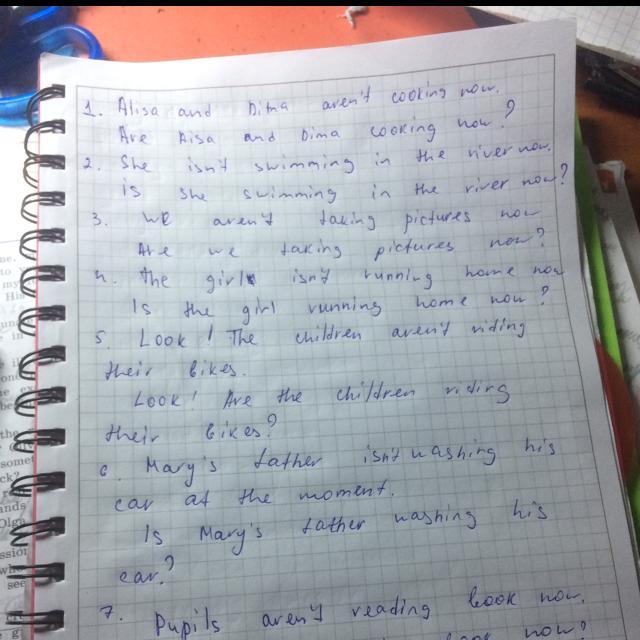 1. Alisa and Dima aren't cooking now.
Are Alisa and Dima cooking now?
2. She isn't swimming in the river now.
Is she swimming in the river now?
3. We aren't taking pictures now
Are we taking pictures now?
4. The girl isn't running home now
Is the girl running home now?
5. Look! The children aren't riding
their bikes.
Look! Are the children riding
their bikes?
6. Mary's father isn't washing his
car at the moment.
Is Mary's father washing his
car?
7. Pupils aren't reading book now.
book now?